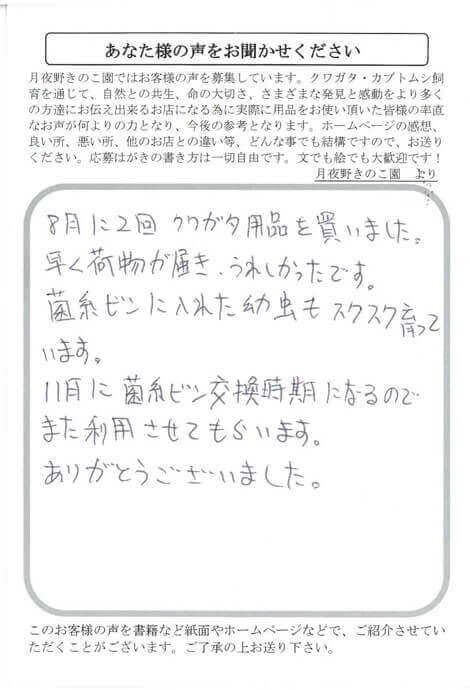 あなた様の声をお聞かせください
月夜野きのこ園ではお客様の声を募集しています。クワガタ・カブトムシ飼
育を通じて、自然との共生、命の大切さ、さまざまな発見と感動をより多く
の方達にお伝え出来るお店になる為に実際に用品をお使い頂いた皆様の率直
なお声が何よりの力となり、今後の参考となります。ホームページの感想、
良い所、悪い所、他のお店との違い等、どんな事でも結構ですので、お送り
ください。応募はがきの書き方は一切自由です。文でも絵でも大歓迎です！
月夜野きのこ園　より
8月に2回 クワガタ用品を買いました。
早く荷物が届き、うれしかったです。
菌糸ビンに入れた幼虫もスクスク育って
います。
11月に菌糸ビン交換時期になるので
また利用させてもらいます。
ありがとうございました。
このお客様の声を書籍など紙面やホームページなどで、ご紹介させてい
ただくことがございます。ご了承の上お送り下さい。